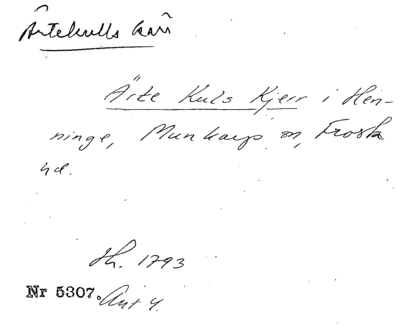 Ärtekulls kärr
Ärte Kuls Kjerr i Hen-
ninge, Munkarps sn, Frosta
hd.
Sh. 1793
Nr 5307. Akt 4.